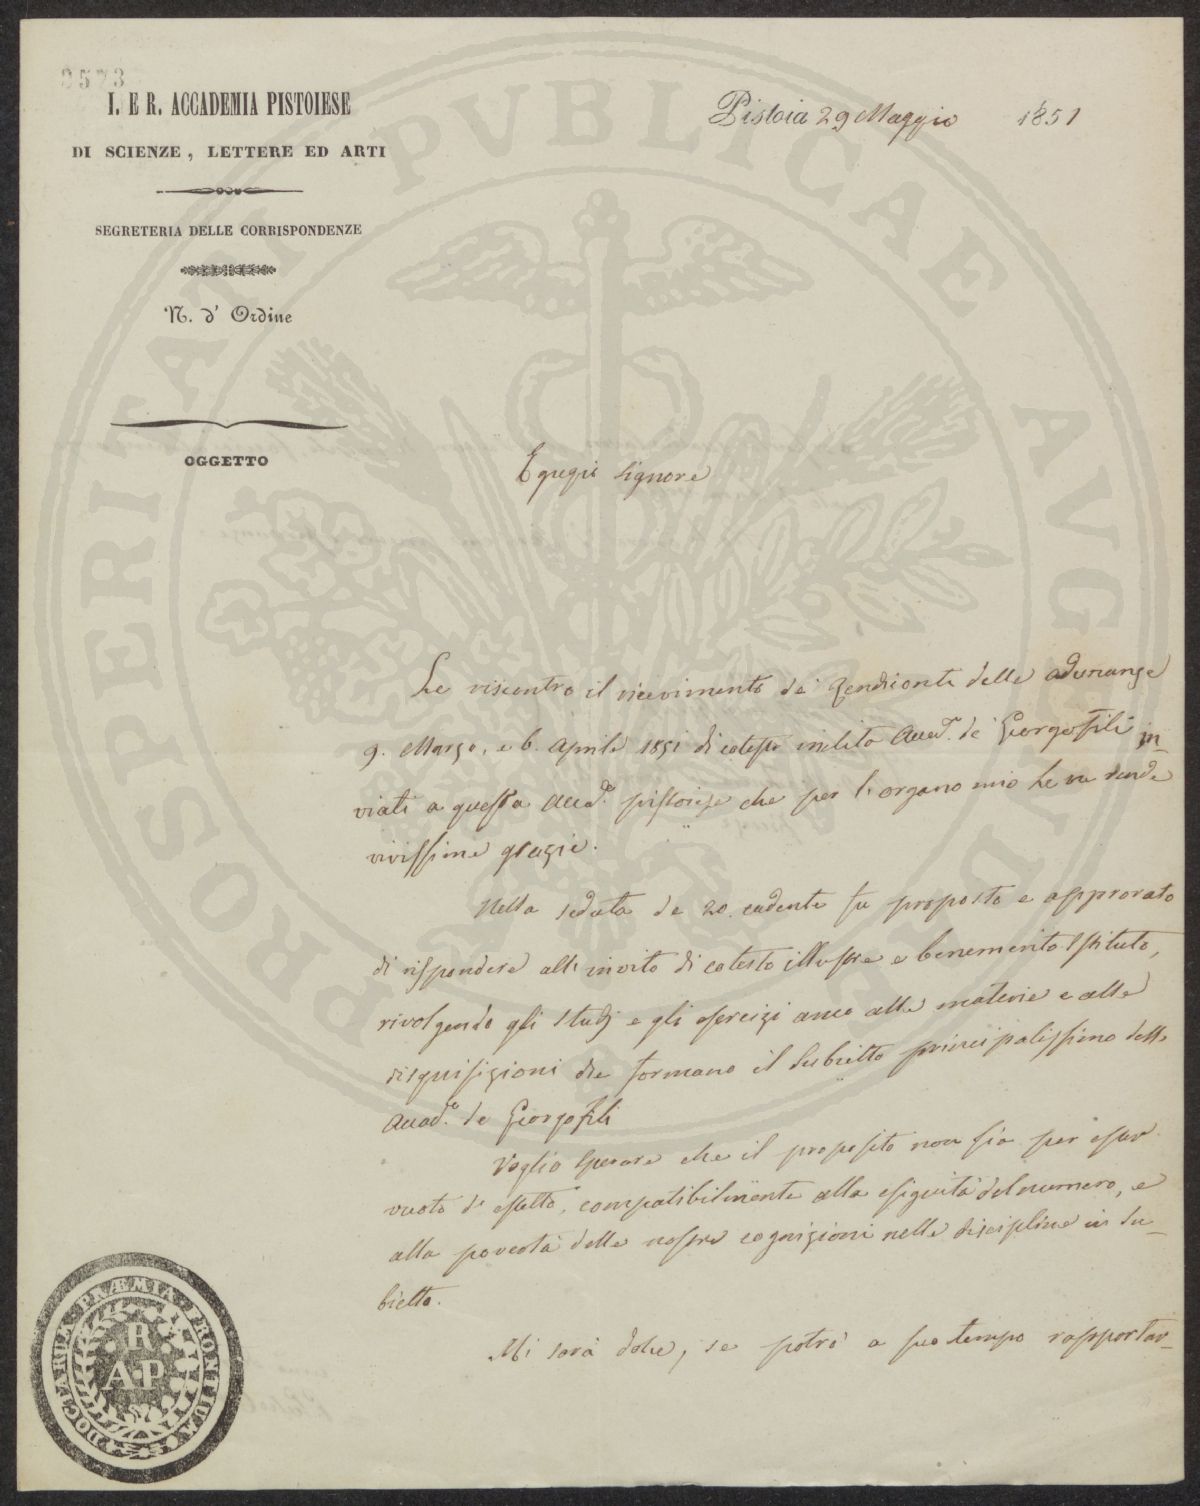 2573
I. E R. ACCADEMIA PISTOIESE
DI SCIENZE, LETTERE ED ARTI
SEGRETERIA DELLE CORRISPONDENZE
N. d' Ordine
OGGETTO
Pistoia 29 Maggio 1851
Egregio Signore
Le riscontro il ricevimento de' Rendiconti delle adunanze
9. Marzo, e 6. Aprile 1851 di cotesta inclita Accad.a de' Georgofili in-
viati a questa Accad.a pistoiese che per l'organo mio Le ne rende
vivissime grazie.
Nella seduta de 20. cadente fu proposto e approvato
di rispondere all'invito di cotesto illustre e benemerito Istituto,
rivolgendo gli studj e gli esercizi anco alle materie e alle
disquisizioni che formano il subietto principalissimo della
Accad.a de Georgofili
Voglio sperare che il proposito non sia per esser
vuoto d'effetto, compatibilmente alla esiguità del numero, e
alla povertà delle nostre cognizioni nelle discipline in su-
bietto.
Mi sarà dolce, se potrò a suo tempo rapportar-
PROSPERITATI PVBLICAE AVGENDAE
DOCTARUM PRÆMIA FRONTIUM
R
A P